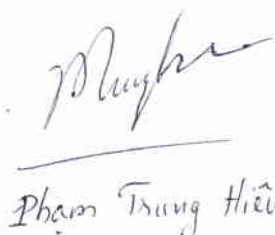 Phạm Trung Hiếu